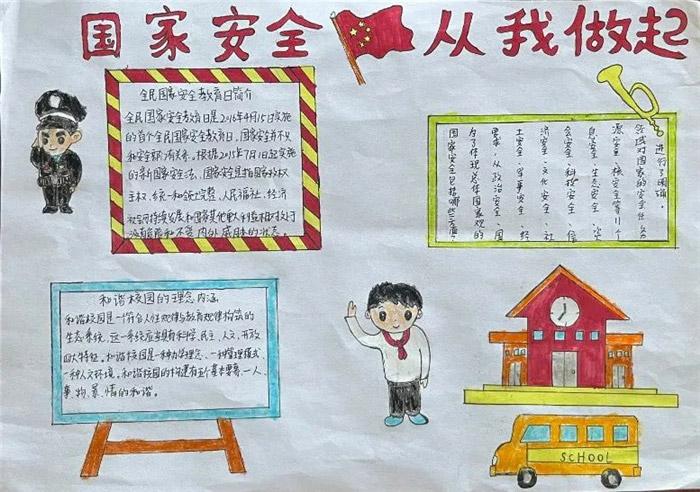 国家安全 从我做起
全民国家安全教育日简介
全民国家安全教育日是2016年4月15日实施
的首个全民国家安全教育日,国家安全并不
根据2015年7月1日起实施
的新国家安全法,国家安全是指国家政权
主权、统一和领土完整、人民福祉、经济
社会可持续发展和国家其他重大利益相对处于
没有危险和不受内外威胁的状态。
国家安全包括哪些方面?
为了体现总体国家观的
要求,从政治安全、国
土安全、军事安全、经
济安全、文化安全、社
会安全、科技安全、信
息安全、生态安全、资
源安全、核安全等11个
领域对国家的安全任务
进行了明确。
和谐校园的理念内涵
和谐校园是一个符合人性规律与教育规律构筑的
生态系统,这一系统应当具有科学、民主、人文、开放
四大特征。和谐校园是一种办学理念、一种管理模式、
一种人文环境。和谐校园的构建有五个基本要素、一人、
事、物、景、情的和谐。
SCHOOL